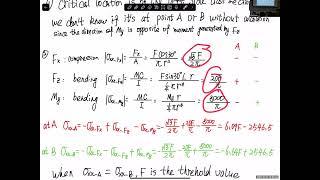 Critical location is
we don't know if it's at point A or B without calculation
since the direction of My is opposite of moment generated by Fz
Fx: compression |σa-Fx| = Fx/A = Fcos30°/πr² = √3F/2π - -
Fz: bending |σa-Fz| = MC/I = Fsin30° L r / ¼πr⁴ = 20F/π - +
My: bending |σa-My| = MC/I = My r / ¼πr⁴ = 8000/π + -
at A σa-A = -σa-Fx - σa-Fz + σa-My = -√3F/2π - 20F/π + 8000/π =
at B σa-B = -σa-Fx + σa-Fz - σa-My = -√3F/2π + 20F/π - 8000/π =
when σa-A = σa-B, F is the threshold value